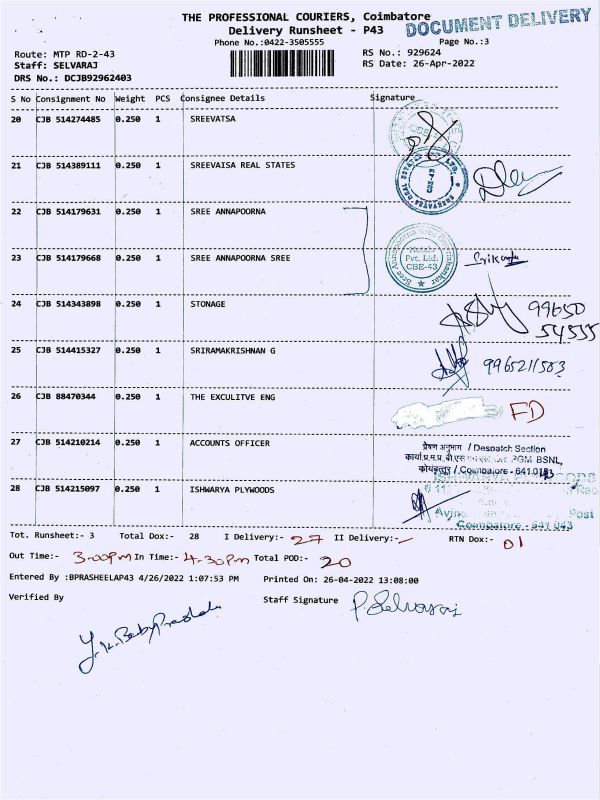 THE PROFESSIONAL COURIERS, Coimbatore
DOCUMENT DELIVERY
Delivery Runsheet - P43
Phone No.:0422-3505555
Page No.:3
Route: MTP RD-2-43
RS No.: 929624
Staff: SELVARAJ
RS Date: 26-Apr-2022
DRS No.: DCJB92962403
S No Consignment No Weight PCS Consignee Details Signature
20 CJB 514274485 0.250 1 SREEVATSA
21 CJB 514389111 0.250 1 SREEVAISA REAL STATES
22 CJB 514179631 0.250 1 SREE ANNAPOORNA
23 CJB 514179668 0.250 1 SREE ANNAPOORNA SREE
Hotels
Pvt. Ltd.
CBE-43
24 CJB 514343898 0.250 1 STONAGE 99650
54535
25 CJB 514415327 0.250 1 SRIRAMAKRISHNAN G 9965211583
26 CJB 88470344 0.250 1 THE EXCULITVE ENG FD
27 CJB 514210214 0.250 1 ACCOUNTS OFFICER
प्रेषण अनुभाग / Despatch Section
PGM BSNL,
कोयम्बत्तूर / Coimbatore - 641 043
28 CJB 514215097 0.250 1 ISHWARYA PLYWOODS
Coimbatore - 641 043
Tot. Runsheet:- 3 Total Dox:- 28 I Delivery:- 27 II Delivery:- - RTN Dox:- 01
Out Time:- 3-00pm In Time:- 4-30pm Total POD:- 20
Entered By :BPRASHEELAP43 4/26/2022 1:07:53 PM Printed On: 26-04-2022 13:08:00
Verified By Staff Signature